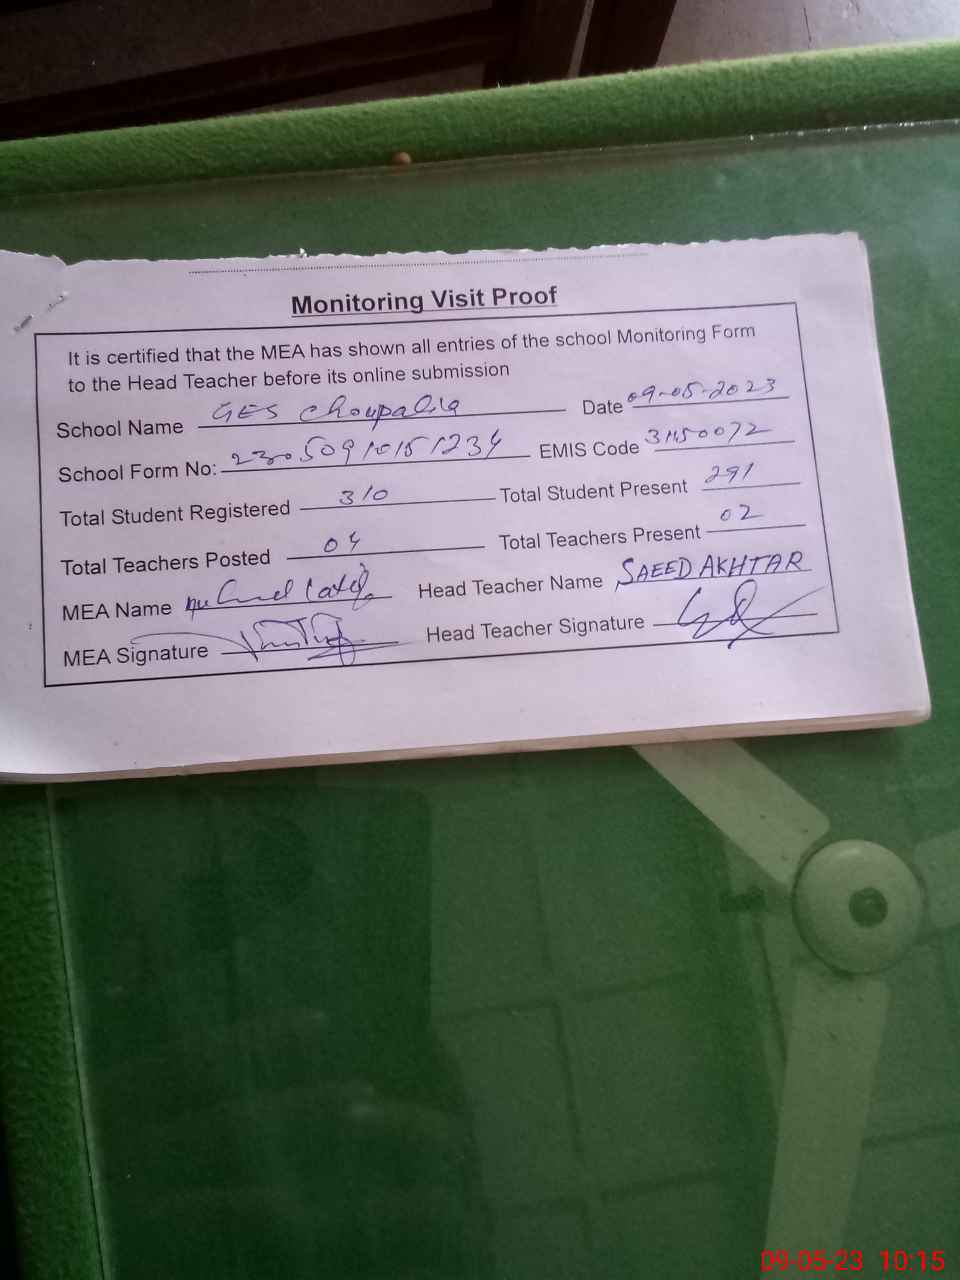 Monitoring Visit Proof
It is certified that the MEA has shown all entries of the school Monitoring Form
to the Head Teacher before its online submission
School Name GES Choupalia Date 09-05-2023
School Form No: 23050910151234 EMIS Code 31150072
Total Student Registered 310 Total Student Present 291
Total Teachers Posted 04 Total Teachers Present 02
MEA Name Head Teacher Name SAEED AKHTAR
MEA Signature Head Teacher Signature
09-05-23 10:15